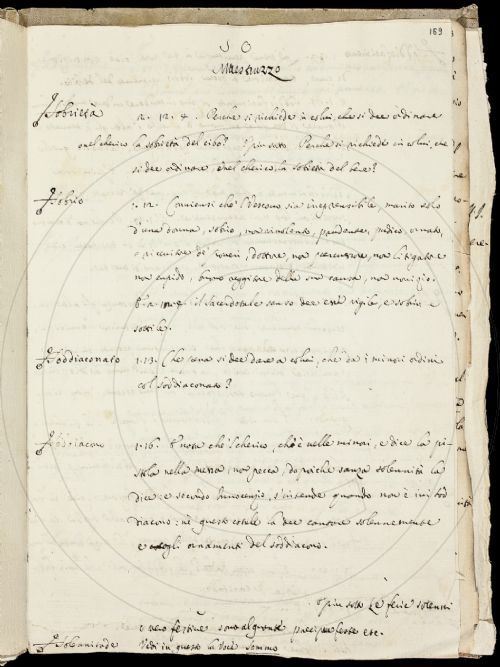 169
S O
Maestruzzo
Sobrietà
2. 12. 4. Perche si richiede in colui, che si dee ordinare
nel cherico la sobrietà del cibo? E piu sotto Perche si richiede in colui, che
si dee ordinare, nel cherico, la sobrietà del bere?
Sobrio
1. 12. Conviensi che'l Vescovo sia irreprensibile, marito solo
d'una donna, sobrio, non vinolento, prudente, pudico, ornato,
e ricevitore de' poveri, Dottore, non percussore, non litigatore
non cupido, buono reggitore della sua causa, non
il Sacerdotale senso dee esser vigile, e sobrio e
sottile.
Soddiaconato
1.13. Che pena si dee dare a colui, che dà i minori ordini
col soddiaconato?
Soddiacono
1.16. E nota che'l cherico, ch'è nelle minori, e dice la pi-
stola nella messa, non pecca, dopoiche sanza solennità la
dice e secondo Innocenzio, s'intende quando non è ivi sod
diacono: nè questo cotale la dee cantare solennemente
e cogli ornamenti del soddiacono.
E piu sotto Le ferie solenni
o vero festive sono alquante principalmente etc.
Solennitade
Vedi in questo la voce sommo